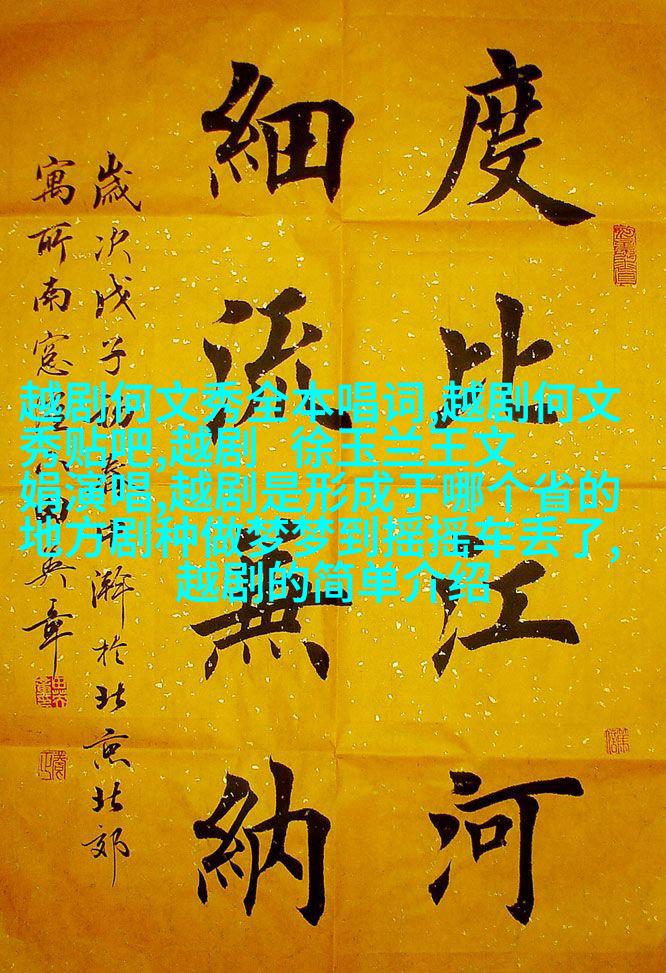 度比江河
細流無納
歲次戊子 澣於北京北郊
寓所南窓 田英章
越剧何文秀全本唱词,越剧何文
秀贴吧,越剧 徐玉兰王文
娟演唱,越剧是形成于哪个省的
地方剧种做梦梦到摇摇车丢了,
越剧的简单介绍